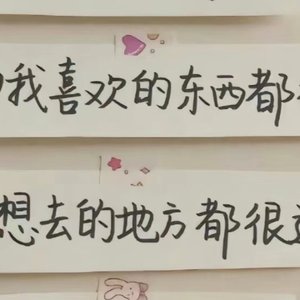 我喜欢的东西都
想去的地方都很